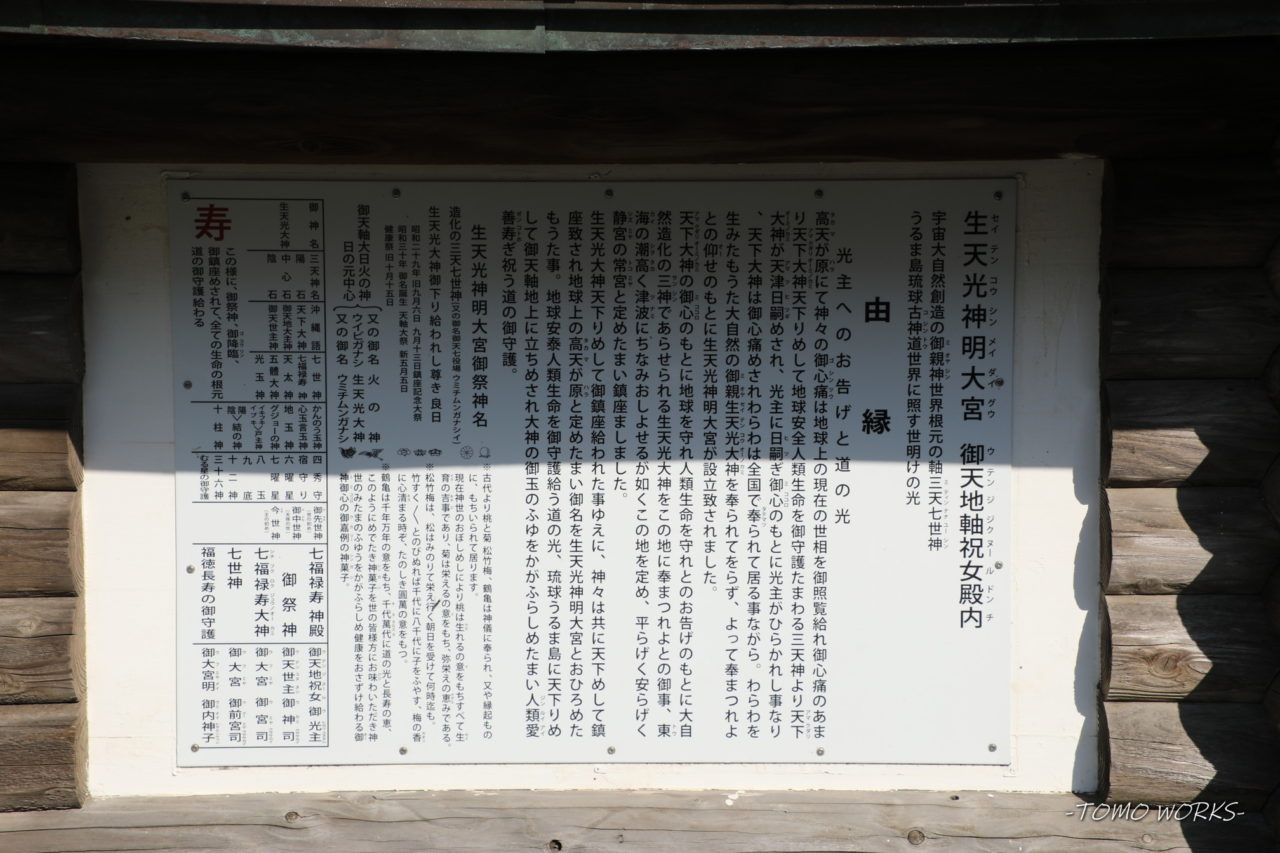 生天光神明大宮 御天地軸祝女殿内
宇宙大自然創造の御親神世界根元の軸三天七世神
うるま島琉球古神道世界に照す世明けの光
由縁
光主へのお告げと道の光
高天が原にて神々の御心痛は地球上の現在の世相を御照覧給れ御心痛のあま
り天下大神天下りめして地球安全人類生命を御守護たまわる三天神より天下
大神が天津日嗣めされ、光主に日嗣ぎ御心のもとに光主がひらかれし事なり
、天下大神は御心痛めされわらわは全国で奉られて居る事ながら。わらわを
生みたもうた大自然の御親生天光大神を奉られてをらず、よって奉まつれよ
との仰せのもとに生天光神明大宮が設立致されました。
天下大神の御心のもとに地球を守れ人類生命を守れとのお告げのもとに大自
然造化の三神であらせられる生天光大神をこの地に奉まつれよとの御事、東
海の潮高く津波にちなみおしよせるが如くこの地を定め、平らげく安らげく
静宮の常宮と定めたまい鎮座ましました。
生天光大神天下りめして御鎮座給われた事ゆえに、神々は共に天下めして鎮
座致され地球上の高天が原と定めたまい御名を生天光神明大宮とおひろめた
もうた事。地球安泰人類生命を御守護給う道の光、琉球うるま島に天下りめ
して御天軸地上に立ちめされ大神の御玉のふゆをかがふらしめたまい人類愛
善寿ぎ祝う道の御守護。
生天光神明大宮御祭神名
造化の三天七世神(又の御名御天七役場ウミチムンガナシイ)
生天光大神御下り給われし尊き良日
昭和二十九年旧九月六日 九月十三日鎮座記念大祭
昭和三十年 御名誕生 天軸大祭 新五月五日
健康祭旧十月十五日
御天軸大日火の神 (又の御名 火の神
日の元中心 ウイビガナシ 生天光大神
(又の御名 ウミチムンガナシ
※古代より桃と菊、松竹梅、鶴亀は神儀に奉られ、又や縁起もの
に、もちいられて居ります。
現在神世のおぼしめしにより桃は生れるの意をもちすべて生
育の吉事であり、菊は栄えるの意をもち、弥栄えの恵みである。
※松竹梅は、松はみのりて栄え行く朝日を受けて何時迄も。
竹すく〱とのびぬれば千代に八千代に子をふやす、梅の香
に心清まる時ぞ、たのしき圓萬の意をもつ。
※鶴亀は千年万年の意をもち、千代萬代に道の光と長寿の恵、
このようにめでたき神菓子を世の皆様方にお味わいただき神
世のみたまのふゆうをかがふらしめ健康をおさずけ給わる御
神御心の御嘉例の神菓子。
御神名 三天神名 沖縄語 七世神 四秀守
生天光大神 陽石 中心石 陰石
天下大神 御天地大主神 御天世主神
七福禄寿神 天太神 五體大神 光玉神
かんのう玉神 心玉言玉神 地玉神 グジョーの神
陽陰 結の神 十柱神
宿守り 六曜星 七曜星 八玉 九底 十二神 三十六神
御先世神 御中世神 今世神
七福禄寿神殿
御祭神
七福禄寿大神
七世神
福徳長寿の御守護
御天地祝女 御光主
御天世主 御神司
御大宮 御宮司
御大宮 御前宮司
御大宮明 御内神子
寿
この様に、御祭神、御降臨、
御鎮座めされて、全ての生命の根元
道の御守護給わる
-TOMO WORKS-